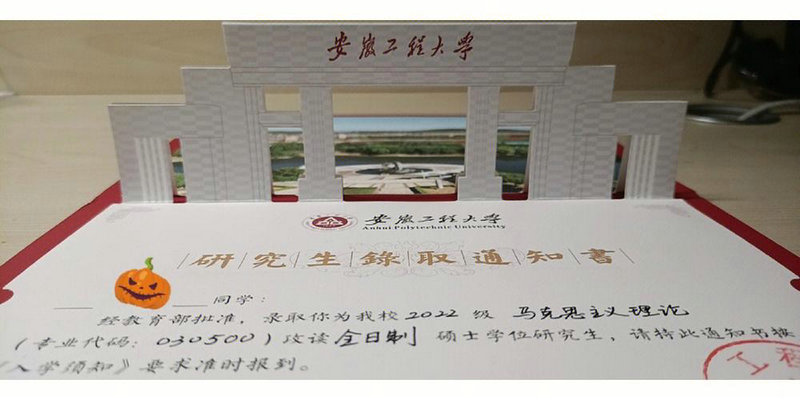 安徽工程大學
安徽工程大学
Anhui Polytechnic University
研究生錄取通知書
同学：
经教育部批准，录取你为我校2022级 马克思主义理论
(专业代码：030500)攻读 全日制 硕士学位研究生，请持此通知书按
《入学须知》要求准时报到。
工程